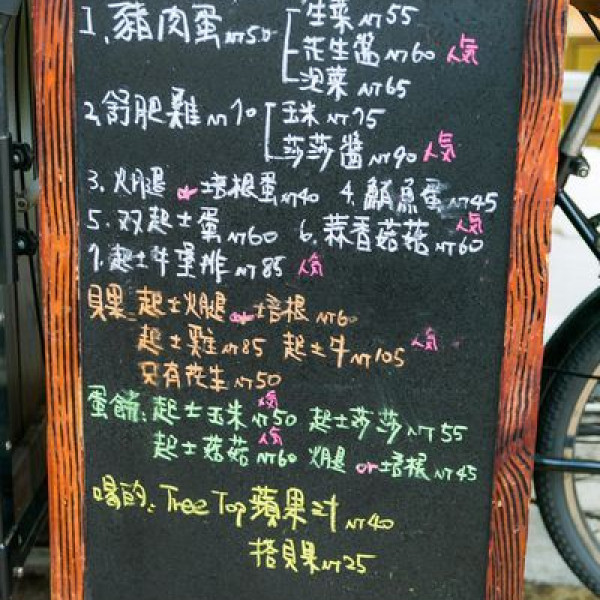 1. 豬肉蛋 NT50 生菜 NT55
花生醬 NT60 人気
泡菜 NT65
2. 舒肥雞 NT70 玉米 NT75
莎莎醬 NT90 人気
3. 火腿 or 培根蛋 NT40 4. 鮪魚蛋 NT45
5. 双起士蛋 NT60 6. 蒜香菇菇 NT60 人気
7. 起士牛堡排 NT85 人気
貝果: 起士火腿 or 培根 NT60
起士雞 NT85 起士牛 NT105 人気
只有花生 NT50
蛋餅: 起士玉米 NT50 人気 起士莎莎 NT55
起士菇菇 NT60 人気 火腿 or 培根 NT45
喝的: Tree Top 蘋果汁 NT40
搭貝果 NT25